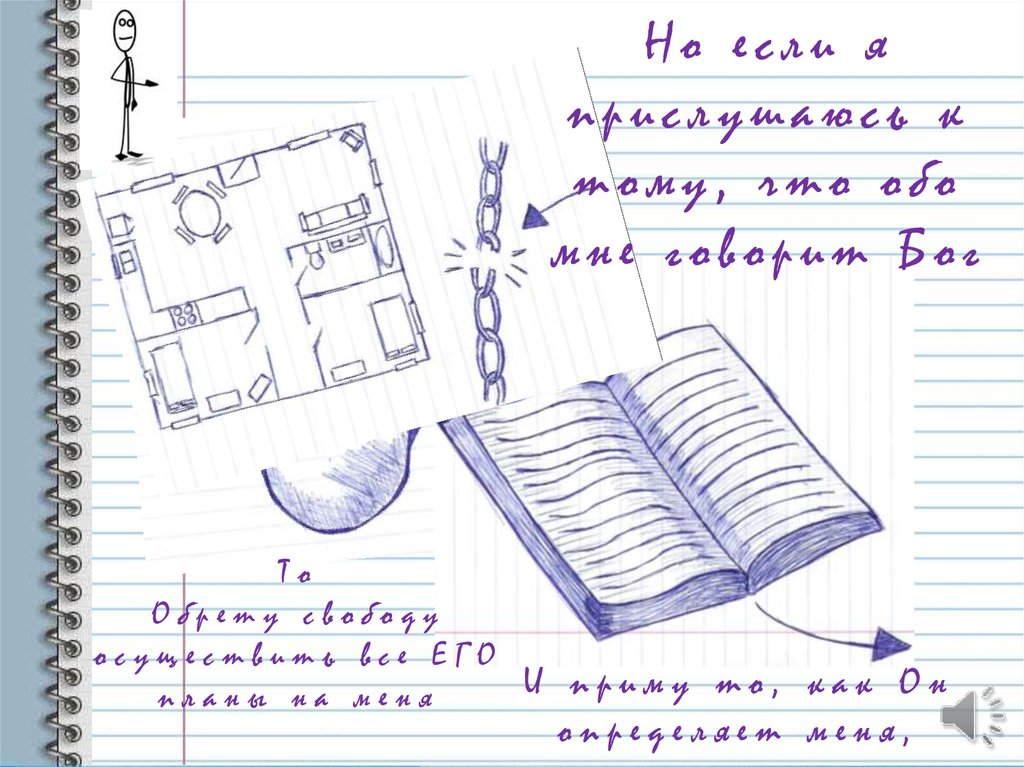 Но если я
прислушаюсь к
тому, что обо
мне говорит Бог
И приму то, как Он
определяет меня,
То
Обрету свободу
осуществить все ЕГО
планы на меня